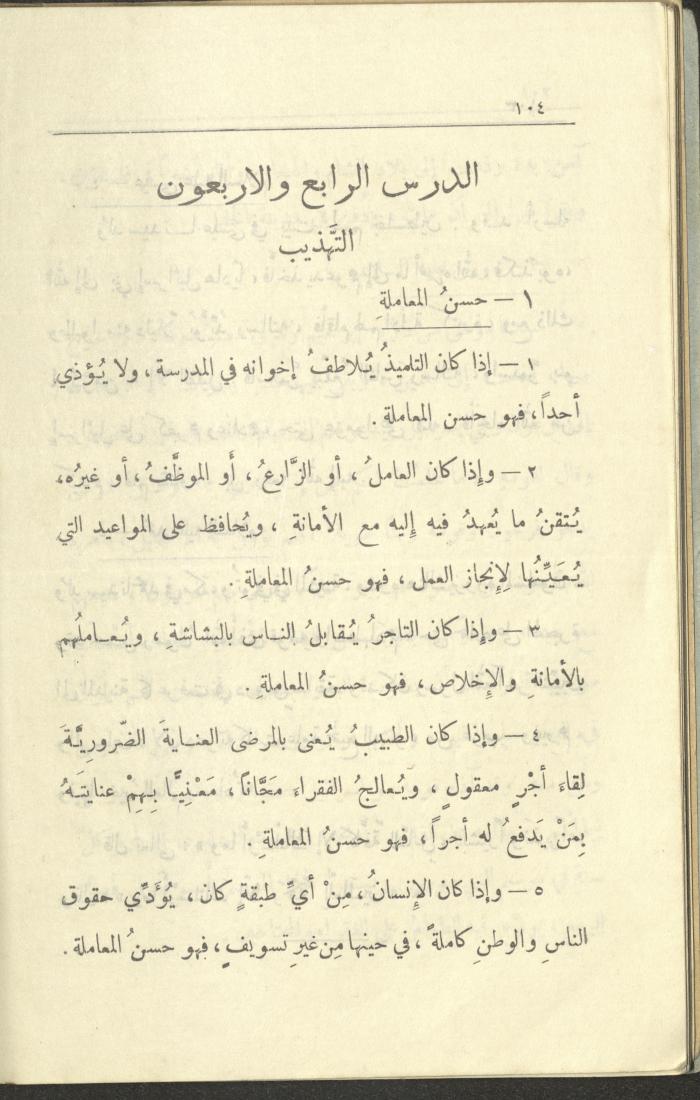 ١٠٤
الدرس الرابع والاربعون
التَّهذيب
١ — حسنُ المعاملةِ
١ — إذا كان التلميذُ يُلاطفُ إخوانه في المدرسة ، ولا يُؤذي
أحداً ، فهو حسن المعاملة .
٢ — وإِذا كان العاملُ ، أو الزَّارعُ ، أَو الموظَّفُ ، أو غيرُه ،
يُتقنُ ما يُعهدُ فيه إِليه مع الأمانةِ ، ويُحافظ على المواعيد التي
يُعَيِّنُها لِإِنجاز العمل ، فهو حسنُ المعاملةِ .
٣ — وإِذا كان التاجرُ يُقابلُ الناس بالبشاشةِ ، ويُعاملُهم
بالأمانةِ والإِخلاص ، فهو حسنُ المعاملةِ .
٤ — وإذا كان الطبيبُ يُعنى بالمرضى العنايةَ الضّروريَّةَ
لِقاءَ أجْرٍ معقولٍ ، ويُعالجُ الفقراء مَجَّاناً ، مَعْنِيًّا بِهِمْ عنايتَهُ
بِمَنْ يَدفعُ له أجراً ، فهو حسنُ المعاملةِ .
٥ — وإذا كان الإِنسانُ ، مِنْ أيِّ طبقةٍ كان ، يُؤَدِّي حقوق
الناسِ والوطنِ كاملةً ، في حينها مِن غيرِ تسويفٍ ، فهو حسنُ المعاملة .